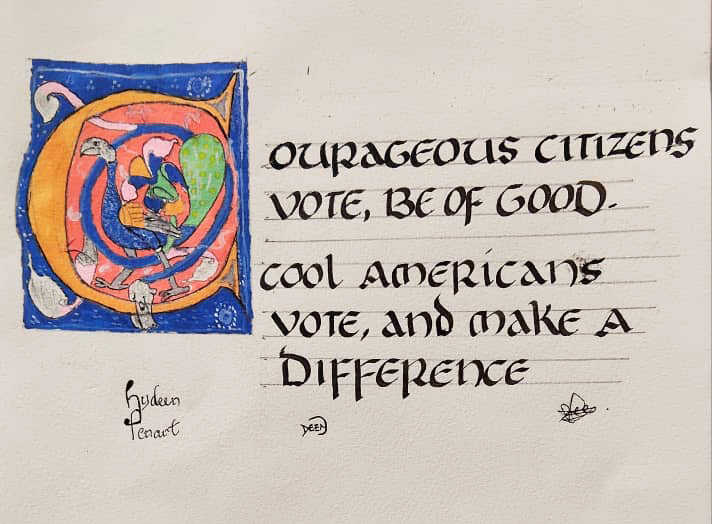 COURAGEOUS CITIZENS
VOTE, BE OF GOOD.
COOL AMERICANS
VOTE, AND MAKE A
DIFFERENCE
Hydeen
Penart
DEEN